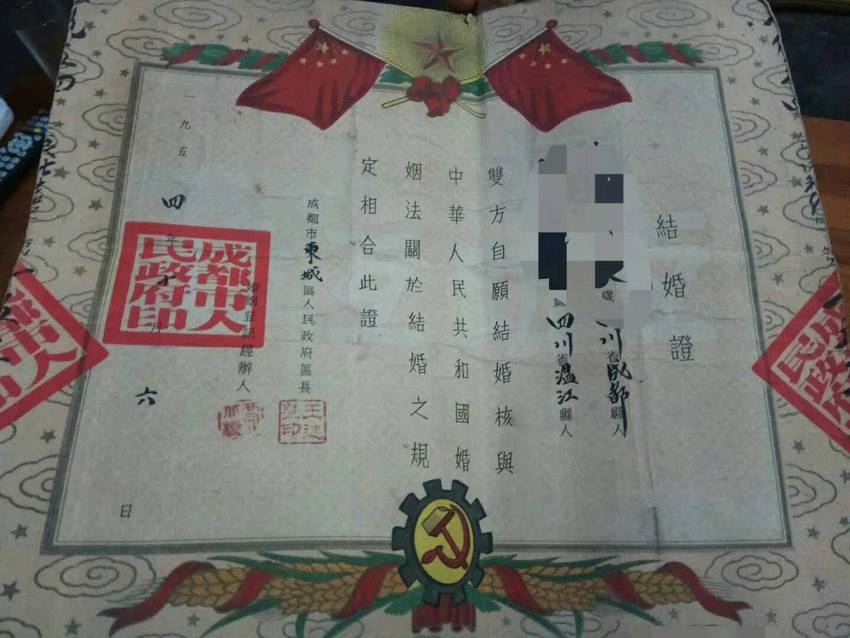 結婚證
歲 川省成都縣人
歲四川省溫江縣人
雙方自願結婚核與
中華人民共和國婚
姻法關於結婚之規
定相合此證
成都市東城區人民政府區長
婚姻登記經辦人
一九五四年 月六日
成都市人民政府印